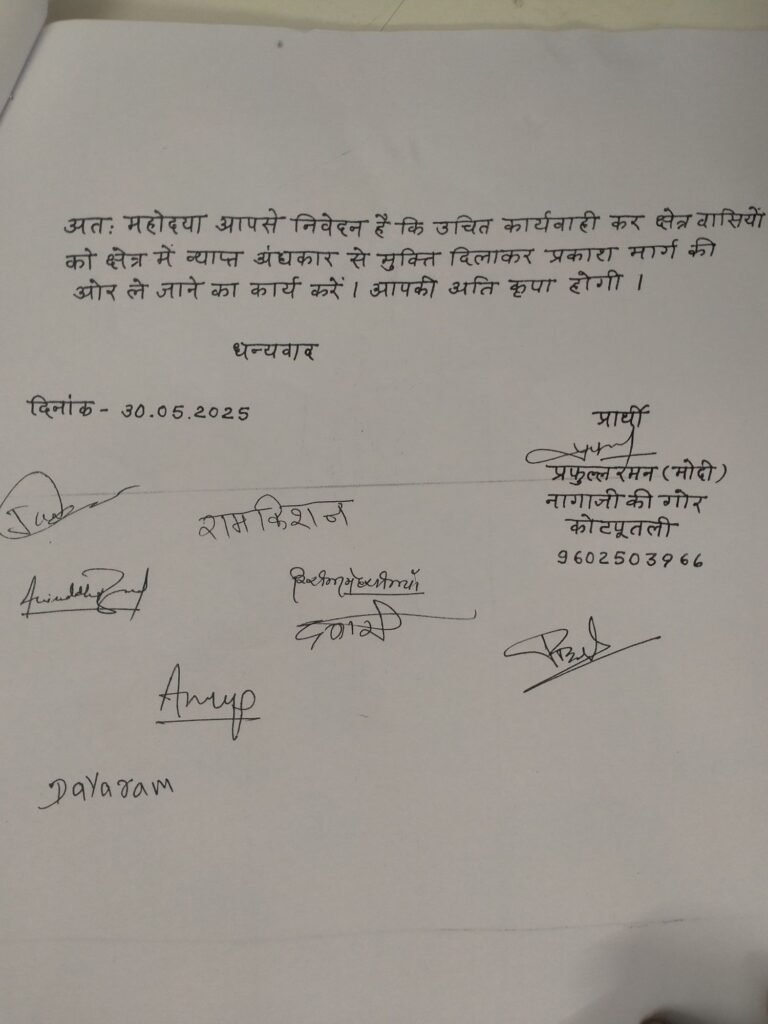 अतः महोदया आपसे निवेदन है कि उचित कार्यवाही कर क्षेत्र वासियों
को क्षेत्र में व्याप्त अंधकार से मुक्ति दिलाकर प्रकाश मार्ग की
ओर ले जाने का कार्य करें । आपकी अति कृपा होगी ।
धन्यवाद
दिनांक - 30.05.2025
प्रार्थी
प्रफुल्ल रमन (मोदी)
नागाजी की गोर
कोटपूतली
9602503966
रामकिशन
Anup
Dayaram